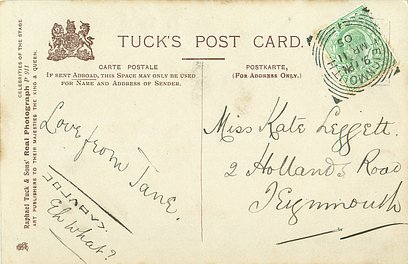 TUCK'S POST CARD.
CARTE POSTALE
IF SENT ABROAD, THIS SPACE MAY ONLY BE USED
FOR NAME AND ADDRESS OF SENDER.
POSTKARTE,
(FOR ADDRESS ONLY.)
CELEBRITIES OF THE STAGE
Raphael Tuck & Sons' Real Photograph P 911
ART PUBLISHERS TO THEIR MAJESTIES THE KING & QUEEN.
Love from Jane.
Eh what?
Miss Kate Leggett.
2 Hollands Road
Teignmouth